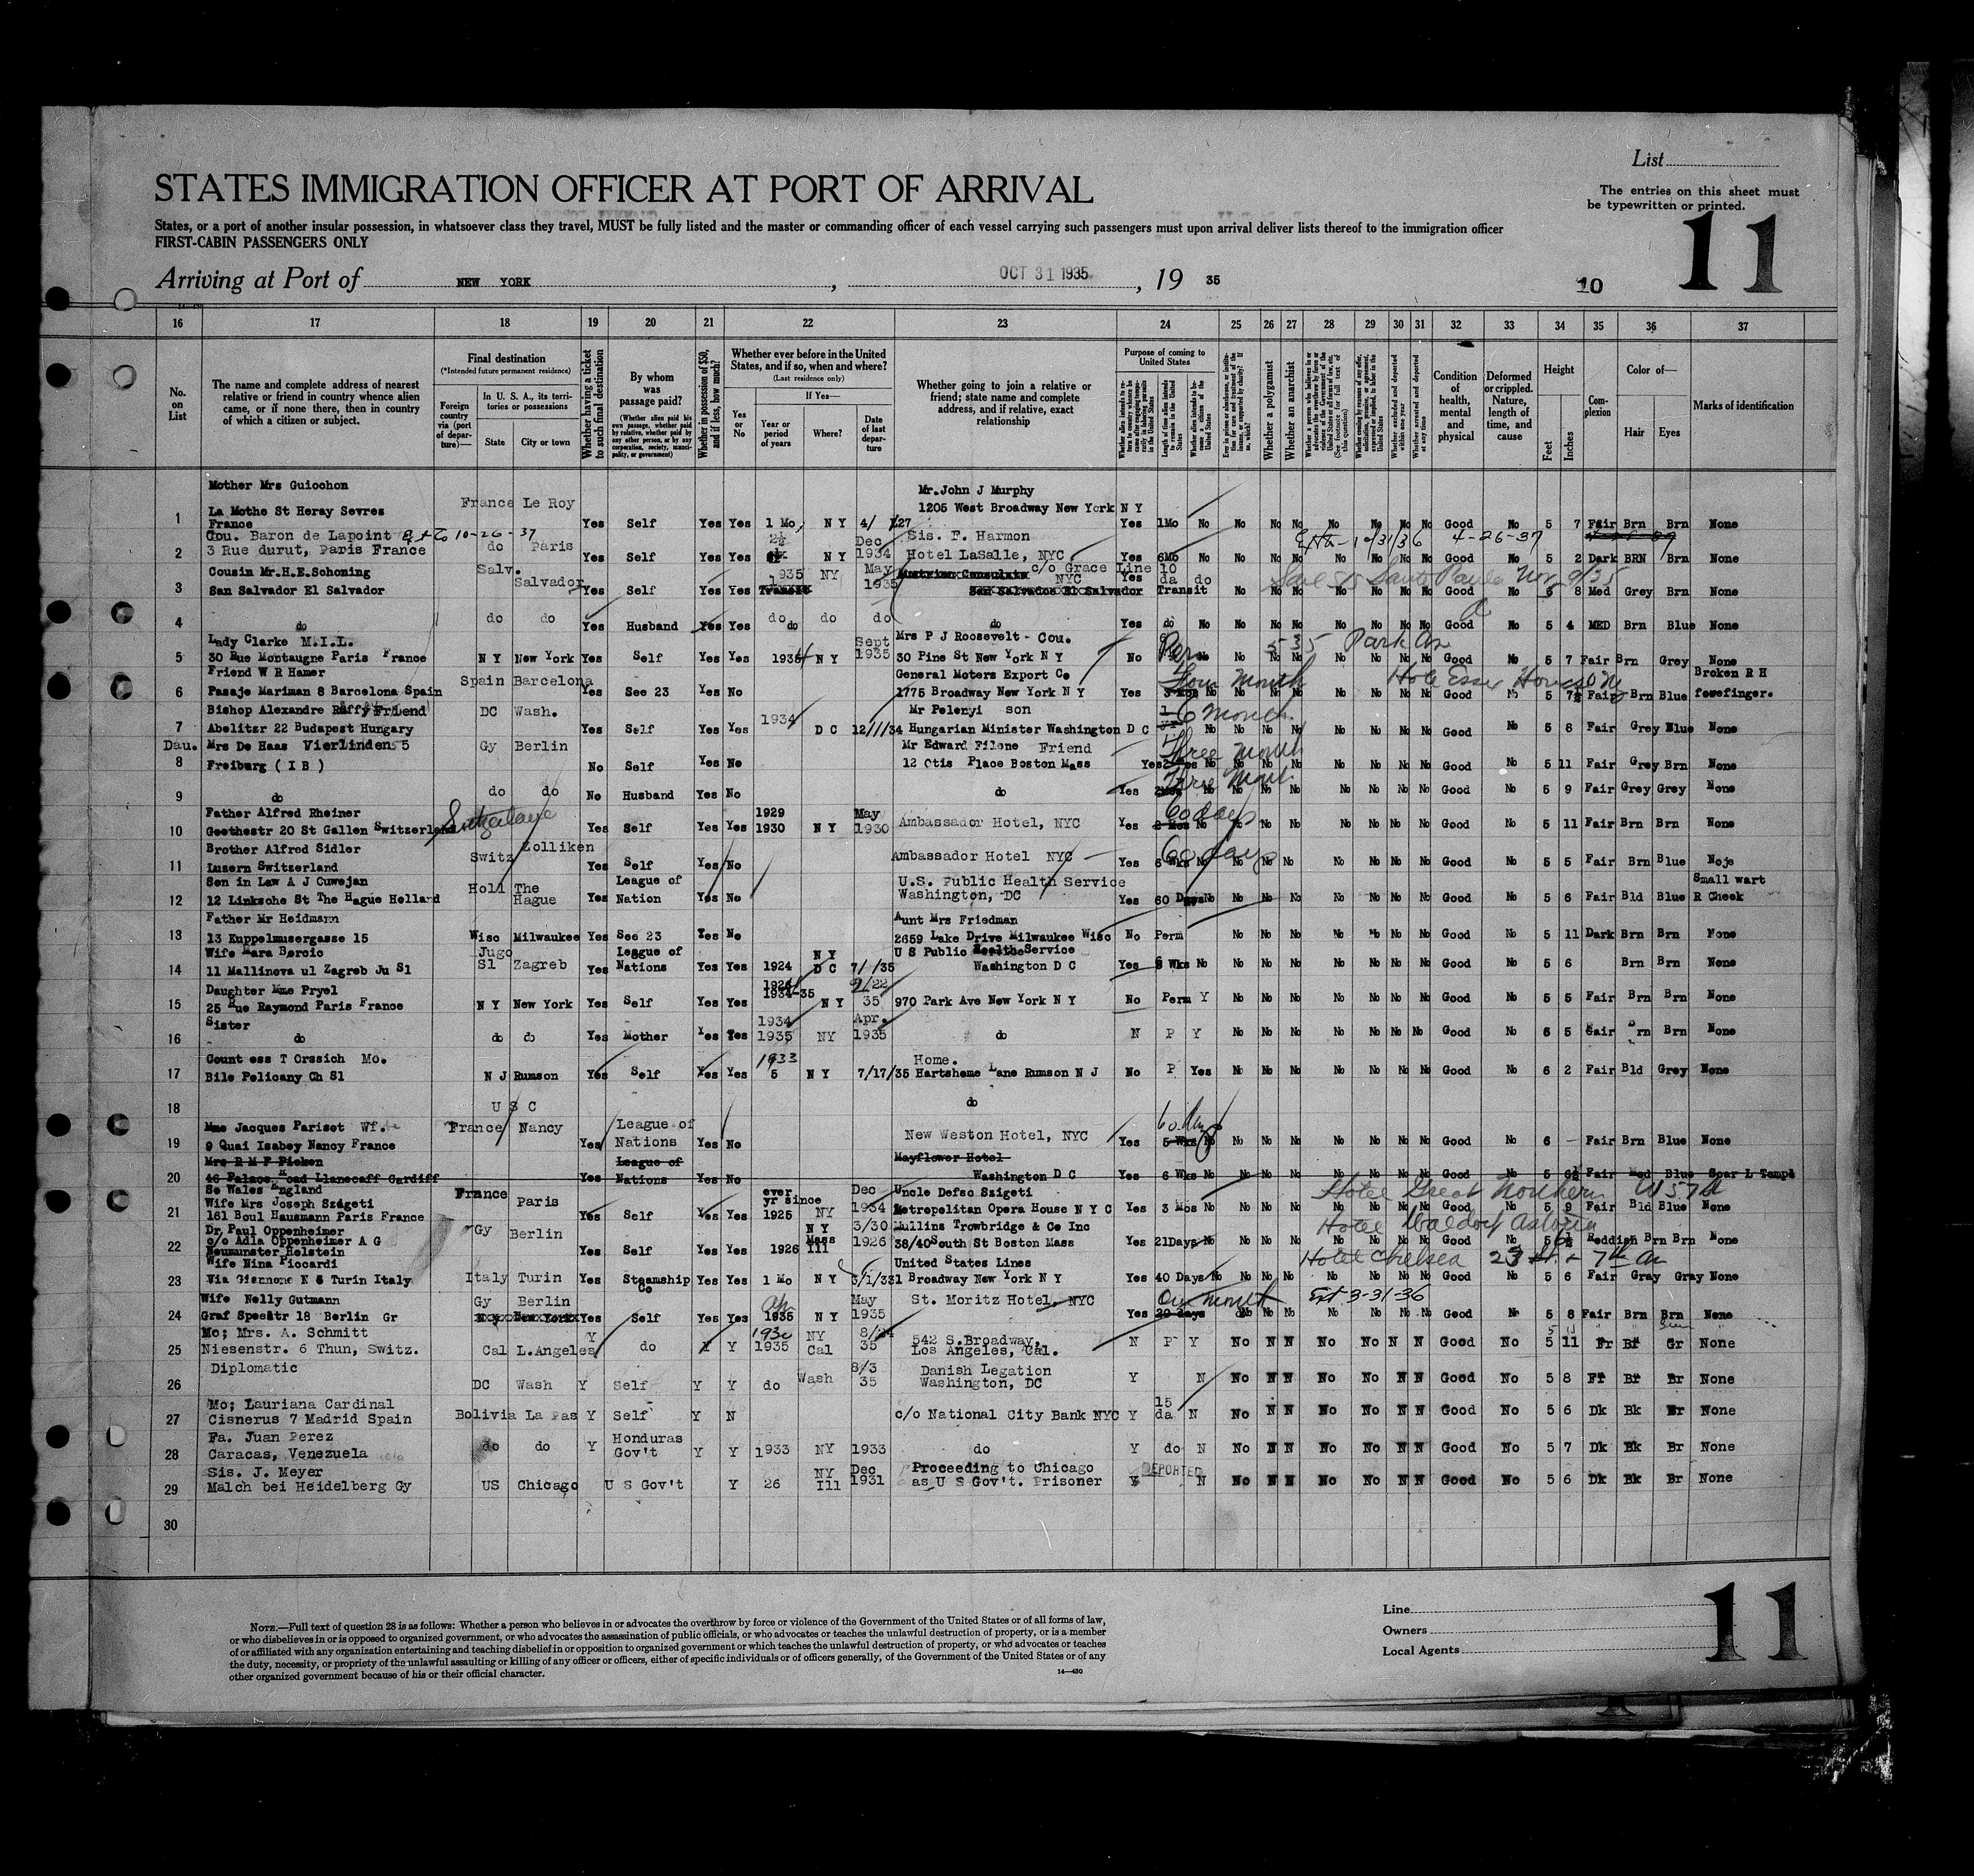 List
STATES IMMIGRATION OFFICER AT PORT OF ARRIVAL
The entries on this sheet must
be typewritten or printed.
States, or a port of another insular possession, in whatsoever class they travel, MUST be fully listed and the master or commanding officer of each vessel carrying such passengers must upon arrival deliver lists thereof to the immigration officer
FIRST-CABIN PASSENGERS ONLY
11
Arriving at Port of NEW YORK, OCT 31 1935, 19 35
10
16 17 18 19 20 21 22 23 24 25 26 27 28 29 30 31 32 33 34 35 36 37
No. on List
The name and complete address of nearest relative or friend in country whence alien came, or if none there, then in country of which a citizen or subject.
Final destination
(*Intended future permanent residence)
Foreign country via (port of departure)—
In U. S. A., its territories or possessions
State
City or town
Whether having a ticket to such final destination
By whom was passage paid?
(Whether alien paid his own passage, whether paid by relative, whether paid by any other person, or by any corporation, society, municipality, or government)
Whether in possession of $50, and if less, how much?
Whether ever before in the United States, and if so, when and where?
(Last residence only)
Yes or No
If Yes—
Year or period of years
Where?
Date of last departure
Whether going to join a relative or friend; state name and complete address, and if relative, exact relationship
Purpose of coming to United States
Length of time alien intends to remain in the United States
Whether alien intends to become a citizen of the United States
Whether a polygamist
Whether an anarchist
Condition of health, mental and physical
Deformed or crippled. Nature, length of time, and cause
Height
Feet
Inches
Complexion
Color of—
Hair
Eyes
Marks of identification
Mother Mrs Guiochon Mr.John J Murphy
La Mothe St Heray Sevres France Le Roy 1205 West Broadway New York N Y
1 France Yes Self Yes Yes 1 Mo N Y 4/ /27 Yes 1Mo No No No No No No No No Good No 5 7 Fair Brn Brn None
Cou. Baron de Lapoint 10-26-37 Dec Sis. F. Harmon 10/31/36 4-26-37
2 3 Rue durut, Paris France do Paris Yes Self Yes Yes N Y 1934 Hotel LaSalle, NYC Yes 6Mo No No No No No No No No Good No 5 2 Dark BRN Brn None
Cousin Mr.H.E.Schoning Salv. 1935 NY May Austrian Consulate c/o Grace Line 10
3 San Salvador El Salvador Salvador Yes Self Yes Yes Transit 1935 NYC San Salvador El Salvador Yes da do Transit No No No No No No No Good No 5 8 Med Grey Brn None
4 do do do Yes Husband Yes Yes do do do do Yes do No No No No No No No No Good No 5 4 MED Brn Blue None
Lady Clarke M.I.L. Sept Mrs P J Roosevelt - Cou. 535 Park
5 30 Rue Montaugne Paris France N Y New York Yes Self Yes Yes 1935 N Y 1935 30 Pine St New York N Y No No No No No No No No Good No 5 7 Fair Brn Grey None
Friend W R Hamer Spain Barcelona General Moters Export Co Four Month Essex House Broken R H
6 Pasaje Mariman 8 Barcelona Spain Yes See 23 Yes No 1775 Broadway New York N Y Yes No No No No No No No No Good No 5 7½ Fair Brn Blue fewefinger.
Bishop Alexandre Raffy Friend DC Wash. 1934 Mr Pelenyi son 6 month
7 Abelitzr 22 Budapest Hungary Yes Self Yes Yes D C 12///34 Hungarian Minister Washington D C No No No No No No No Good No 5 8 Fair Grey Blue None
Dau. Mrs De Haas Vierlinden 5 Gy Berlin Mr Edward Filene Friend Three Month
8 Freiburg ( I B ) No Self Yes No 12 Otis Place Boston Mass Yes No No No No No No No No Good No 5 11 Fair Grey Brn None
9 do do do No Husband Yes No do Yes Three Month No No No No No No No Good No 5 9 Fair Grey Grey None
Father Alfred Rheiner 1929 May 60 days
10 Goethestr 20 St Gallen Switzerland Yes Self Yes Yes 1930 N Y 1930 Ambassador Hotel, NYC Yes 2 Mos No No No No No No No No Good No 5 11 Fair Brn Brn None
Brother Alfred Sidler Switz Zolliken 60 days
11 Luzern Switzerland Yes Self Yes No Ambassador Hotel NYC Yes 6 Wks No No No No No No No No Good No 5 5 Fair Brn Blue Noje
Sen in Law A J Cuwejan Holl The League of U.S. Public Health Service Small wart
12 12 Linksche St The Hague Holland Hague Yes Nation Yes No Washington, DC Yes 60 Days No No No No No No No No Good No 5 6 Fair Bld Blue R Cheek
Father Mr Heidmann Aunt Mrs Friedman
13 13 Kuppelmusergasse 15 Wisc Milwaukee Yes See 23 Yes No 2659 Lake Drive Milwaukee Wisc No Perm No No No No No No No Good No 5 11 Dark Brn Brn None
Wife Mara Bercic Jugo League of N Y U S Public Health Service
14 11 Mallinova ul Zagreb Ju Sl Sl Zagreb Yes Nations Yes Yes 1924 D C 7/ /35 Washington D C Yes Wks No No No No No No No No Good No 5 6 Brn Brn None
Daughter Mme Pryel 1934-35 9/22
15 25 Rue Raymond Paris France N Y New York Yes Self Yes Yes N Y 35 970 Park Ave New York N Y No Perm Y No No No No No No No Good No 5 5 Fair Brn Brn None
Sister 1934 Apr.
16 do do do Yes Mother Yes Yes 1935 NY 1935 do N P Y No No No No No No No Good No 5 Brn Brn None
Count ess T Orssich Mo. 1933 Home.
17 Bile Pelicany Ch Sl N J Rumson Yes Self Yes Yes 5 N Y 7/17/35 Hartsheme Lane Rumson N J No P Yes No No No No No No No Good No 6 2 Fair Bld Grey None
18 U S C do
Mme Jacques Parisot Wf. France Nancy League of 60 days
19 9 Quai Isabey Nancy France Yes Nations Yes No New Weston Hotel, NYC Yes 5 Wks No No No No No No No No Good No 6 - Fair Brn Blue None
Mrs R M F Picken League of Mayflower Hotel
20 46 Palace Road Llanecaff Cardiff Yes Nations Yes No Washington D C Yes 6 Wks No No No No No No No No Good No 5 6½ Fair Med Blue Scar L Templ
So Wales England France ever Dec Uncle Defso Szigeti Hotel Great Northern W 57
Wife Mrs Joseph Szigeti Paris yr since
21 161 Boul Hausmann Paris France Yes Self Yes Yes 1925 NY 1934 Metropolitan Opera House N Y C Yes 3 Mos No No No No No No No No Good No 5 9 Fair Bld Blue None
Dr. Paul Oppenheimer Gy Berlin N Y 3/30 Mullins Trowbridge & Co Inc Hotel Waldorf Astoria
c/o Adla Oppenheimer A G Mass
22 Neumunster Holstein Yes Self Yes Yes 1926 Ill 1926 38/40 South St Boston Mass Yes 21Days No No No No No No No No Good No 5 Reddish Brn Brn None
Wife Nina Piccardi United States Lines Hotel Chelsea 23 St. - 7th Av
23 Via Giennone N 6 Turin Italy Italy Turin Yes Steamship Co Yes Yes 1 Mo N Y 3/1/33 1 Broadway New York N Y Yes 40 Days No No No No No No No No Good No 5 6 Fair Gray Gray None
Wife Nelly Gutmann Gy Berlin May St. Moritz Hotel, NYC One month Ext 3-31-36
24 Graf Speestr 18 Berlin Gr Yes Self Yes Yes 1935 N Y 1935 Yes 29 days No No No No No No No Good No 5 8 Fair Brn Brn None
Mo; Mrs. A. Schmitt 1930 NY 8/24 542 S.Broadway,
25 Niesenstr. 6 Thun, Switz. Cal L.Angeles Y do Y Y 1935 Cal 35 Los Angeles, Cal. N P Y No N N No No N N Good No 5 11 Fr Br Gr None
Diplomatic 8/3 Danish Legation
26 DC Wash Y Self Y Y do Wash 35 Washington, DC Y N No N N No No N N Good No 5 8 Fr Br Br None
Mo; Lauriana Cardinal 15
27 Cisnerus 7 Madrid Spain Bolivia La Pas Y Self Y N c/o National City Bank NYC Y da N No N N No No N N Good No 5 6 Dk Bk Br None
Fa. Juan Perez Honduras
28 Caracas, Venezuela do do Y Gov't Y Y 1933 NY 1933 do Y do N No N N No No N N Good No 5 7 Dk Bk Br None
Sis. J. Meyer NY Dec Proceeding to Chicago DEPORTED
29 Malch bei Heidelberg Gy US Chicago U S Gov't Y 26 Ill 1931 as U S Gov't. Prisoner N No N N No No N N Good No 5 6 Dk Bk Br None
30
NOTE.—Full text of question 28 is as follows: Whether a person who believes in or advocates the overthrow by force or violence of the Government of the United States or of all forms of law,
or who disbelieves in or is opposed to organized government, or who advocates the assassination of public officials, or who advocates or teaches the unlawful destruction of property, or is a member
of or affiliated with any organization entertaining and teaching disbelief in or opposition to organized government or which teaches the unlawful destruction of property, or who advocates or teaches
the duty, necessity, or propriety of the unlawful assaulting or killing of any officer or officers, either of specific individuals or of officers generally, of the Government of the United States or of any
other organized government because of his or their official character.
14—430
Line
Owners
Local Agents
11